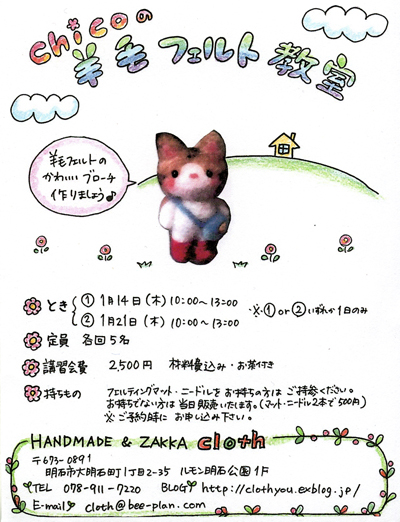 chicoの
羊毛フェルト教室
羊毛フェルトの
かわいいブローチ
作りましょう♪
とき ① 1月14日(木) 10:00〜13:00
② 1月21日(木) 10:00〜13:00
※①or②いずれか1日のみ
定員 各回5名
講習会費 2,500円 材料費込み・お茶付き
持ちもの フェルティングマット・ニードルをお持ちの方はご持参ください。
お持ちでない方は当日販売いたします。(マット・ニードル2本で500円)
※ご予約時にお申し込み下さい。
HANDMADE & ZAKKA cloth
〒673-0891
明石市大明石町1丁目2-35 ルモン明石公園1F
TEL 078-911-7220 BLOG http://clothyou.exblog.jp/
E-mail cloth@bee-plan.com